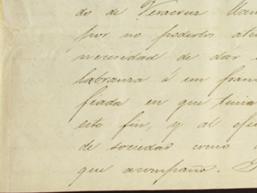 do de Veracruz
por no poderlos
necesidad de dar
labranza á un
fiada en que tenia
este fin, y al
de sociedad como
que acompaño.